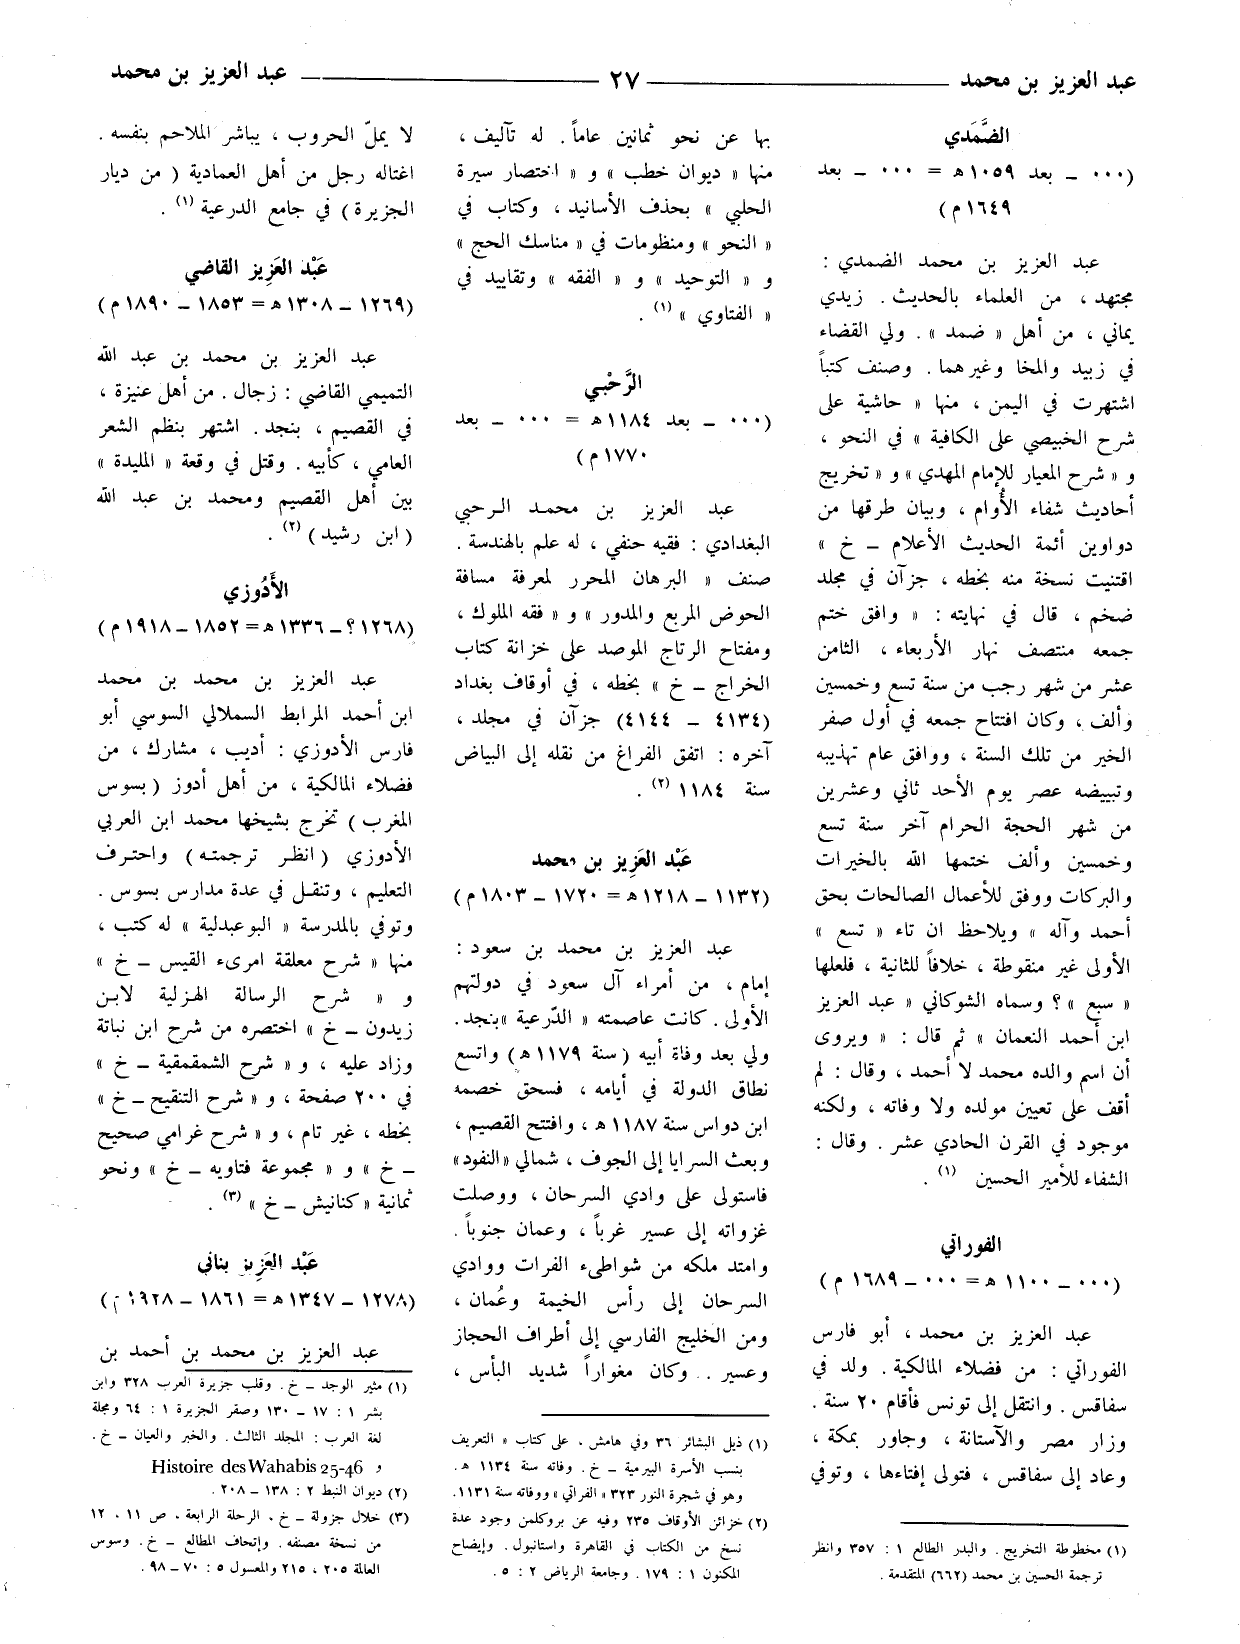 عبد العزيز بن محمد ــ ٢٧ ــ عبد العزيز بن محمد
الضَّمَدي
(٠٠٠ ــ بعد ١٠٥٩ هـ = ٠٠٠ ــ بعد
١٦٤٩ م)
عبد العزيز بن محمد الضمدي :
مجتهد ، من العلماء بالحديث . زيدي
يماني ، من أهل « ضمد » . ولي القضاء
في زبيد والمخا وغيرهما . وصنف كتباً
اشتهرت في اليمن ، منها « حاشية على
شرح الخبيصي على الكافية » في النحو ،
و « شرح المعيار للإمام المهدي » و « تخريج
أحاديث شفاء الأُوام ، وبيان طرقها من
دواوين أئمة الحديث الأعلام ــ خ »
اقتنيت نسخة منه بخطه ، جزآن في مجلد
ضخم ، قال في نهايته : « وافق ختم
جمعه منتصف نهار الأربعاء ، الثامن
عشر من شهر رجب من سنة تسع وخمسين
وألف ، وكان افتتاح جمعه في أول صفر
الخير من تلك السنة ، ووافق عام تهذيبه
وتبييضه عصر يوم الأحد ثاني وعشرين
من شهر الحجة الحرام آخر سنة تسع
وخمسين وألف ختمها الله بالخيرات
والبركات ووفق للأعمال الصالحات بحق
أحمد وآله » ويلاحظ ان تاء « تسع »
الأولى غير منقوطة ، خلافاً للثانية ، فلعلها
« سبع » ؟ وسماه الشوكاني « عبد العزيز
ابن أحمد النعمان » ثم قال : « ويروى
أن اسم والده محمد لا أحمد ، وقال : لم
أقف على تعيين مولده ولا وفاته ، ولكنه
موجود في القرن الحادي عشر . وقال :
الشفاء للأمير الحسين (١) .
الفوراتي
(٠٠٠ ــ ١١٠٠ هـ = ٠٠٠ ــ ١٦٨٩ م)
عبد العزيز بن محمد ، أبو فارس
الفوراتي : من فضلاء المالكية . ولد في
سفاقس . وانتقل إلى تونس فأقام ٢٠ سنة .
وزار مصر والآستانة ، وجاور بمكة ،
وعاد إلى سفاقس ، فتولى إفتاءها ، وتوفي
(١) مخطوطة التخريج . والبدر الطالع ١ : ٣٥٧ وانظر
ترجمة الحسين بن محمد (٦٦٢) المتقدمة .
بها عن نحو ثمانين عاماً . له تآليف ،
منها « ديوان خطب » و « اختصار سيرة
الحلبي » بحذف الأسانيد ، وكتاب في
« النحو » ومنظومات في « مناسك الحج »
و « التوحيد » و « الفقه » وتقاييد في
« الفتاوي » (١) .
الرَّحْبي
(٠٠٠ ــ بعد ١١٨٤ هـ = ٠٠٠ ــ بعد
١٧٧٠ م)
عبد العزيز بن محمد الرحبي
البغدادي : فقيه حنفي ، له علم بالهندسة .
صنف « البرهان المحرر لمعرفة مسافة
الحوض المربع والمدور » و « فقه الملوك ،
ومفتاح الرتاج الموصد على خزانة كتاب
الخراج ــ خ » بخطه ، في أوقاف بغداد
(٤١٣٤ ــ ٤١٤٤) جزآن في مجلد ،
آخره : اتفق الفراغ من نقله إلى البياض
سنة ١١٨٤ (٢) .
عَبْد العَزِيز بن محمد
(١١٣٢ ــ ١٢١٨ هـ = ١٧٢٠ ــ ١٨٠٣ م)
عبد العزيز بن محمد بن سعود :
إمام ، من أمراء آل سعود في دولتهم
الأولى . كانت عاصمته « الدّرعية » بنجد .
ولي بعد وفاة أبيه (سنة ١١٧٩ هـ) واتسع
نطاق الدولة في أيامه ، فسحق خصمه
ابن دواس سنة ١١٨٧ هـ ، وافتتح القصيم ،
وبعث السرايا إلى الجوف ، شمالي «النفود»
فاستولى على وادي السرحان ، ووصلت
غزواته إلى عسير غرباً ، وعمان جنوباً .
وامتد ملكه من شواطىء الفرات ووادي
السرحان إلى رأس الخيمة وعُمان ،
ومن الخليج الفارسي إلى أطراف الحجاز
وعسير .. وكان مغواراً شديد البأس ،
(١) ذيل البشائر ٣٦ وفي هامش ، على كتاب « التعريف
بنسب الأسرة البيرمية ــ خ . وفاته سنة ١١٣٤ هـ .
وهو في شجرة النور ٣٢٣ « الفراتي » ووفاته سنة ١١٣١.
(٢) خزائن الأوقاف ٢٣٥ وفيه عن بروكلمن وجود عدة
نسخ من الكتاب في القاهرة واستانبول . وإيضاح
المكنون ١ : ١٧٩ . وجامعة الرياض ٢ : ٥ .
لا يملّ الحروب ، يباشر الملاحم بنفسه .
اغتاله رجل من أهل العمادية ( من ديار
الجزيرة ) في جامع الدرعية (١) .
عَبْد العَزِيز القاضي
(١٢٦٩ ــ ١٣٠٨ هـ = ١٨٥٣ ــ ١٨٩٠ م)
عبد العزيز بن محمد بن عبد الله
التميمي القاضي : زجال . من أهل عنيزة ،
في القصيم ، بنجد . اشتهر بنظم الشعر
العامي ، كأبيه . وقتل في وقعة « المليدة »
بين أهل القصيم ومحمد بن عبد الله
( ابن رشيد ) (٢) .
الأَدُوزي
(١٢٦٨ ؟ ــ ١٣٣٦ هـ = ١٨٥٢ ــ ١٩١٨ م)
عبد العزيز بن محمد بن محمد
ابن أحمد المرابط السملالي السوسي أبو
فارس الأدوزي : أديب ، مشارك ، من
فضلاء المالكية ، من أهل أدوز ( بسوس
المغرب ) تخرج بشيخها محمد ابن العربي
الأدوزي ( انظر ترجمته ) واحترف
التعليم ، وتنقل في عدة مدارس بسوس .
وتوفي بالمدرسة « البوعبدلية » له كتب ،
منها « شرح معلقة امرىء القيس ــ خ »
و « شرح الرسالة الهزلية لابن
زيدون ــ خ » اختصره من شرح ابن نباتة
وزاد عليه ، و « شرح الشمقمقية ــ خ »
في ٢٠٠ صفحة ، و « شرح التنقيح ــ خ »
بخطه ، غير تام ، و « شرح غرامي صحيح
ــ خ » و « مجموعة فتاويه ــ خ » ونحو
ثمانية « كنانيش ــ خ » (٣) .
عَبْد العَزِيز بناني
(١٢٧٨ ــ ١٣٤٧ هـ = ١٨٦١ ــ ١٩٢٨ م)
عبد العزيز بن محمد بن أحمد بن
(١) مثير الوجد ــ خ . وقلب جزيرة العرب ٣٢٨ وابن
بشر ١ : ١٧ ــ ١٣٠ وصقر الجزيرة ١ : ٦٤ ومجلة
لغة العرب : المجلد الثالث . والخبر والعيان ــ خ .
و Histoire des Wahabis 25-46
(٢) ديوان النبط ٢ : ١٣٨ ــ ٢٠٨ .
(٣) خلال جزولة ــ خ . الرحلة الرابعة ، ص ١١ ، ١٢
من نسخة مصنفه . وإتحاف المطالع ــ خ . وسوس
العالمة ٢٠٥ ، ٢١٥ والمعسول ٥ : ٧٠ ــ ٩٨ .